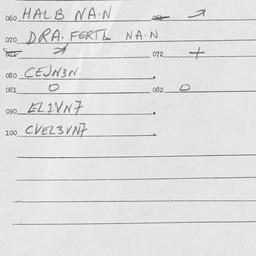 060 HALB NA.N
070 DRA. FERTL NA.N
072 +
080 CEJN3N
081 0 082 0
090 EL1VN7
100 CVEL3VN7